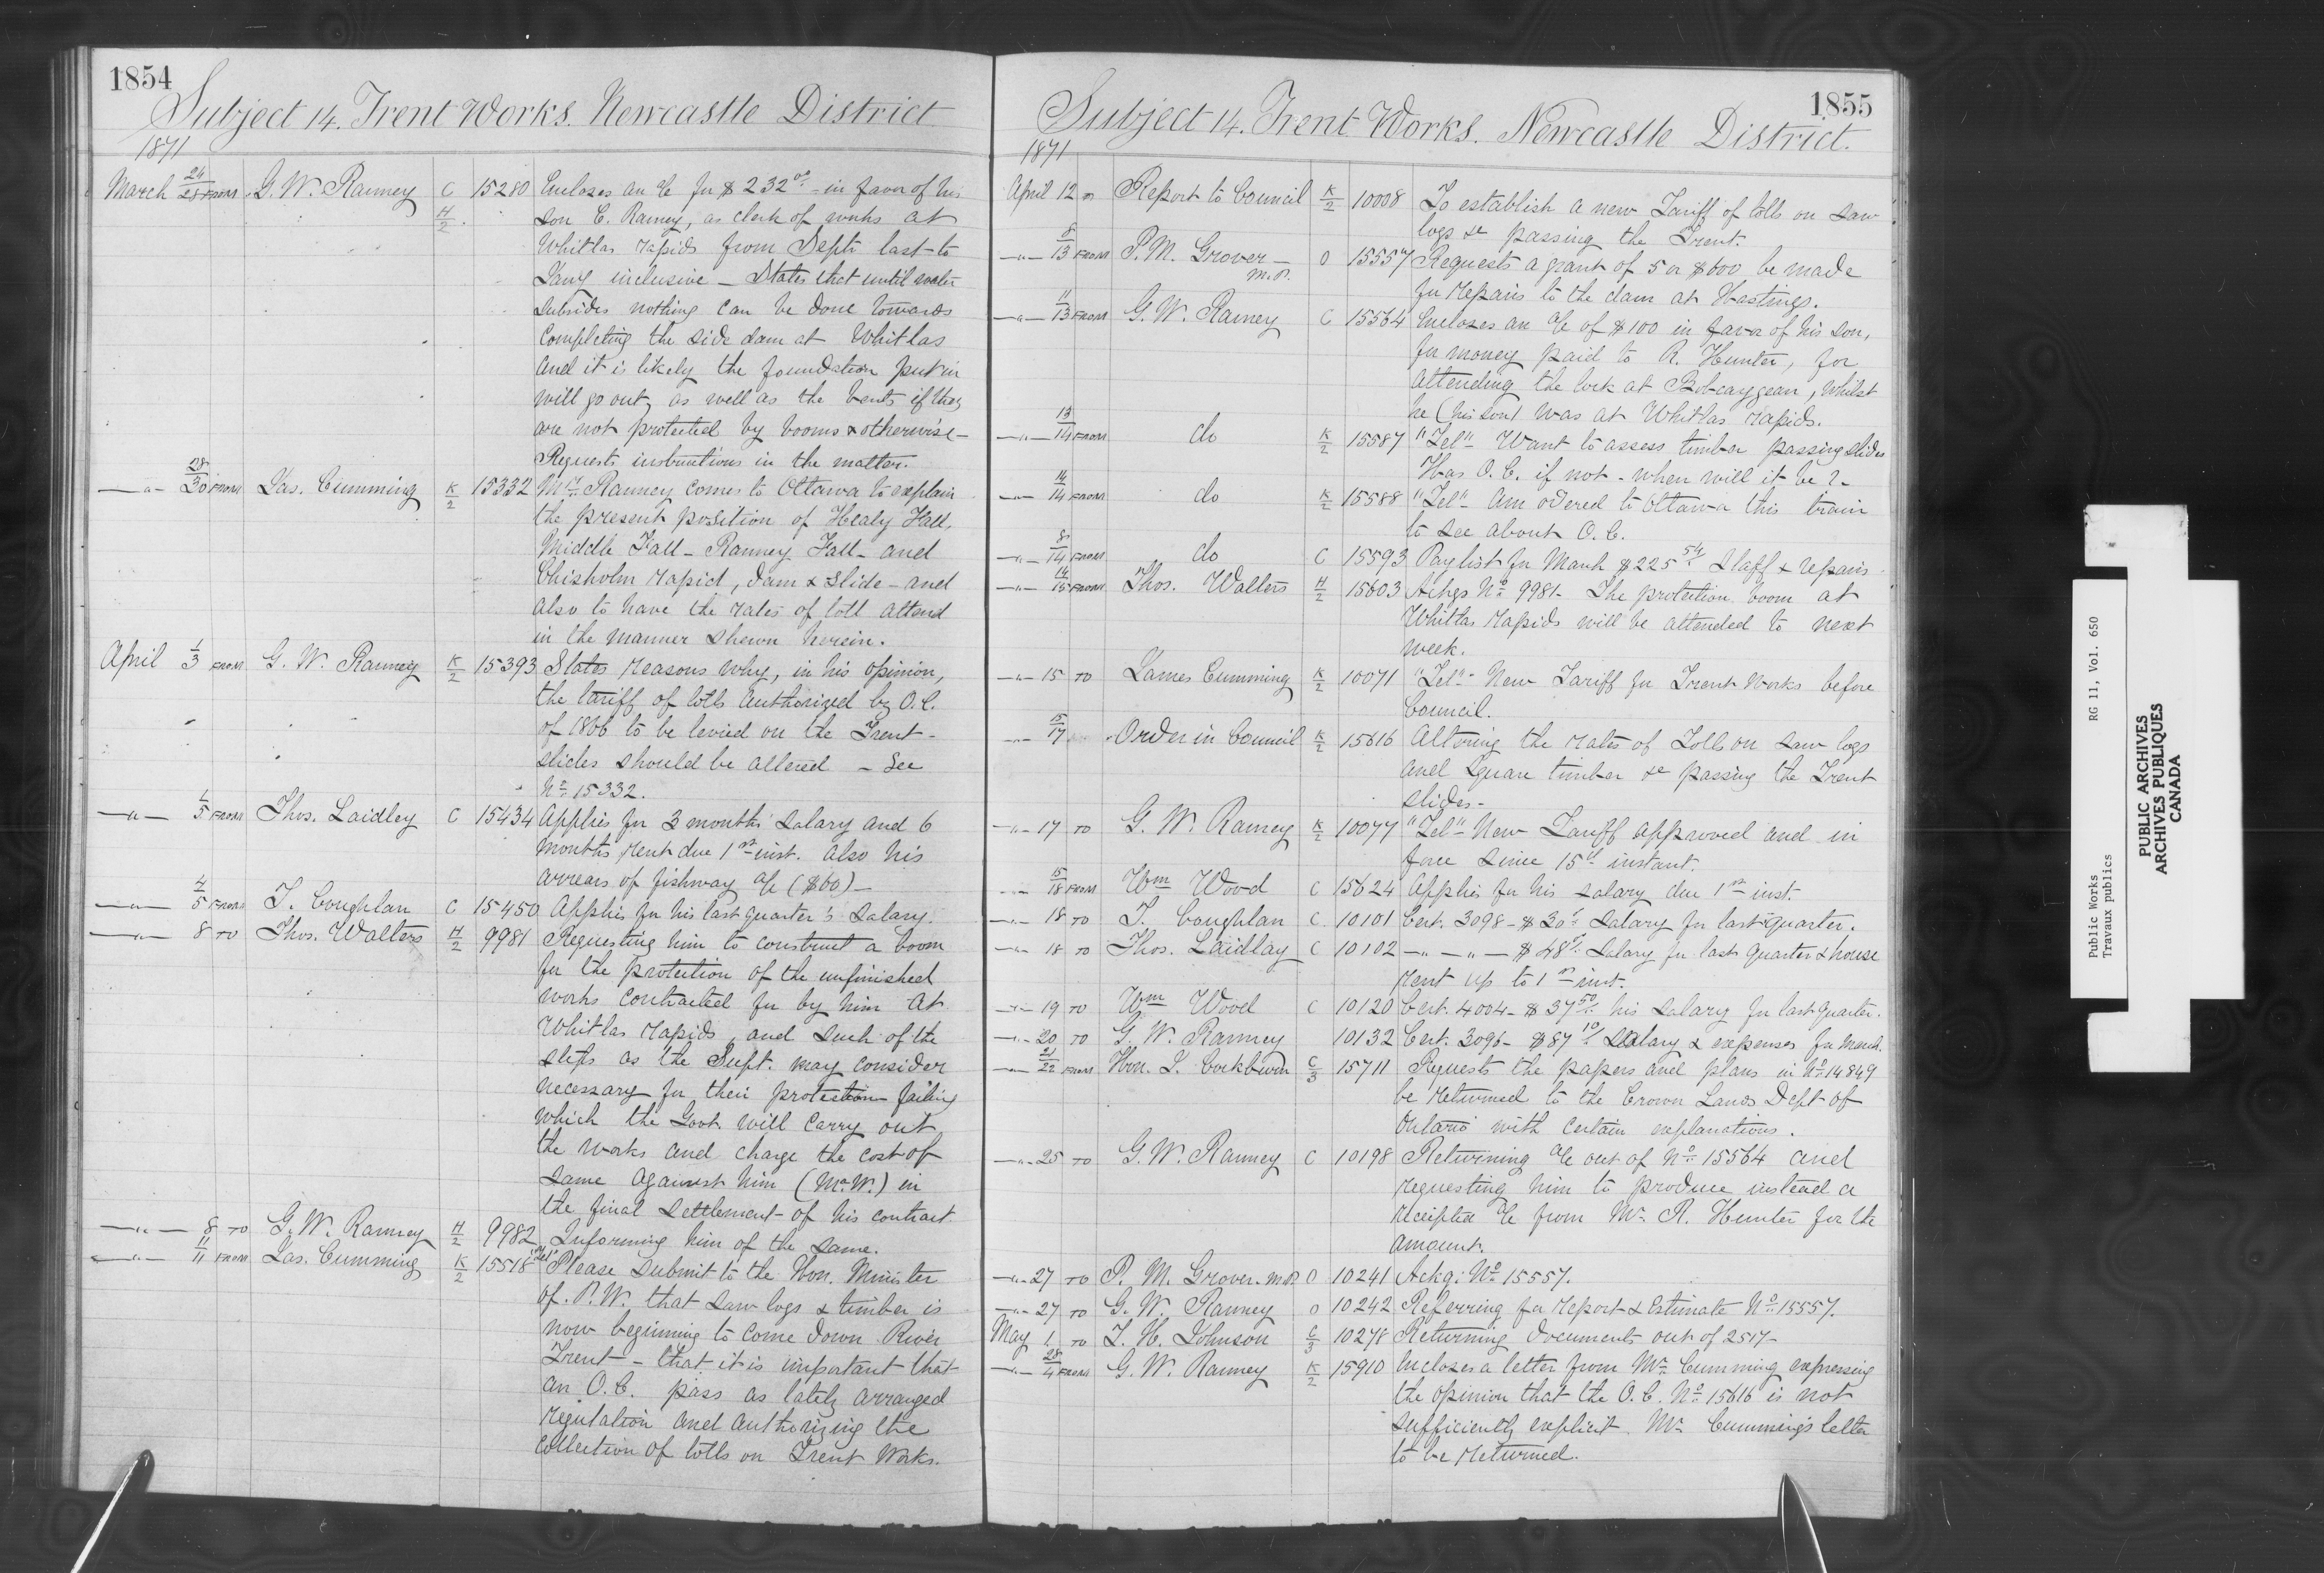 1854
Subject 14. Trent Works. Newcastle District
1871
March 24/28 FROM G. W. Ranney C H/2 15280 Encloses an a/c for $232.00 in favor of his
son C. Ranney, as clerk of works at
Whitlas rapids from Septr last to
Jany inclusive – States that until water
subsides nothing can be done towards
completing the side dam at Whitlas
and it is likely the foundation put in
will go out, as well as the bents if they
are not protected by booms & otherwise –
Requests instructions in the matter.
—"— 28/30 FROM Jas. Cumming K/2 15332 Mr. Ranney comes to Ottawa to explain
the present position of Healy Fall,
Middle Fall – Ranney Fall – and
Chisholm rapid, dam & slide – and
also to have the rates of toll altered
in the manner shewn herein.
April 1/3 FROM G. W. Ranney K/2 15393 States reasons why, in his opinion,
the tariff of tolls authorized by O.C.
of 1866 to be levied on the Trent
slides should be altered – See
No. 15332.
—"— 1/5 FROM Thos. Laidley C 15434 Applies for 3 months' salary and 6
months rent due 1st inst. also his
arrears of fishway a/c ($60) –
—"— 4/5 FROM T. Coughlan C 15450 Applies for his last quarter's salary.
—"— 8 TO Thos. Walters H/2 9981 Requesting him to construct a boom
for the protection of the unfinished
works contracted for by him at
Whitlas rapids, and such of the
slips as the Supt. may consider
necessary for their protection failing
which the Govt will carry out
the works and charge the cost of
same against him (Mr. W.) in
the final settlement of his contract.
—"— 8 TO G. W. Ranney H/2 9982 Informing him of the same.
—"— 11/11 FROM Jas. Cumming K/2 15518 "Tel" Please submit to the Hon. Minister
of P.W. that saw logs & timber is
now beginning to come down River
Trent – that it is important that
an O.C. pass as lately arranged
regulation and authorizing the
collection of tolls on Trent Works.
1855
Subject 14. Trent Works. Newcastle District.
1871
April 12 Report to Council K/2 10008 To establish a new Tariff of tolls on saw
logs &c passing the Trent.
—"— 8/13 FROM P. M. Grover – M.P. O 15557 Requests a grant of 5 or $600 be made
for repairs to the dam at Hastings.
—"— 11/13 FROM G. W. Ranney C 15564 Encloses an a/c of $100 in favor of his son,
for money paid to R. Hunter, for
attending the lock at Bobcaygean, whilst
he (his son) was at Whitlas rapids.
—"— 13/14 FROM do K/2 15587 "Tel" Want to assess timber passing slides
Has O.C. if not – when will it be? –
—"— 14/14 FROM do K/2 15588 "Tel" Am ordered to Ottawa this train
to see about O.C.
—"— 8/14 FROM do C 15593 Paylist for March $225.54 Staff & repairs
—"— 14/15 FROM Thos. Walters H/2 15603 Ackgs No. 9981 – The protection boom at
Whitlas rapids will be attended to next
week.
—"— 15 TO James Cumming K/2 10071 "Tel" New Tariff for Trent Works before
Council.
—"— 15/17 Order in Council K/2 15616 Altering the rates of Tolls on saw logs
and square timber &c passing the Trent
slides –
—"— 17 TO G. W. Ranney K/2 10077 "Tel" New Tariff approved and in
force since 15th instant.
—"— 15/18 FROM Wm Wood C 15624 Applies for his salary due 1st inst.
—"— 18 TO T. Coughlan C 10101 Cert. 3098 – $30 Salary for last quarter.
—"— 18 TO Thos. Laidlay C 10102 —"—"— $48 Salary for last quarter & house
rent up to 1st inst.
—"— 19 TO Wm Wood C 10120 Cert. 4004 – $37.50 his salary for last quarter.
—"— 20 TO G. W. Ranney 10132 Cert. 3096 – $87.10 Salary & expenses for March.
—"— 21/22 FROM Hon. J. Cockburn C/3 15711 Requests the papers and plans in No. 14849
be returned to the Crown Lands Dept of
Ontario with certain explanations.
—"— 25 TO G. W. Ranney C 10198 Returning a/c out of No. 15564 and
requesting him to produce instead a
receipted a/c from Mr. R. Hunter for the
amount.
—"— 27 TO P. M. Grover. M.P. O 10241 Ackg: No. 15557.
—"— 27 TO G. W. Ranney O 10242 Referring for report & Estimate No. 15557.
May 1 TO T. H. Johnson C/3 10278 Returning documents out of 2517 –
—"— 28/4 FROM G. W. Ranney K/2 15910 Incloses a letter from Mr. Cumming expressing
the opinion that the O.C. No. 15616 is not
sufficiently explicit. Mr. Cumming's letter
to be returned.
Public Works RG 11, Vol. 650
Travaux publics
PUBLIC ARCHIVES
ARCHIVES PUBLIQUES
CANADA